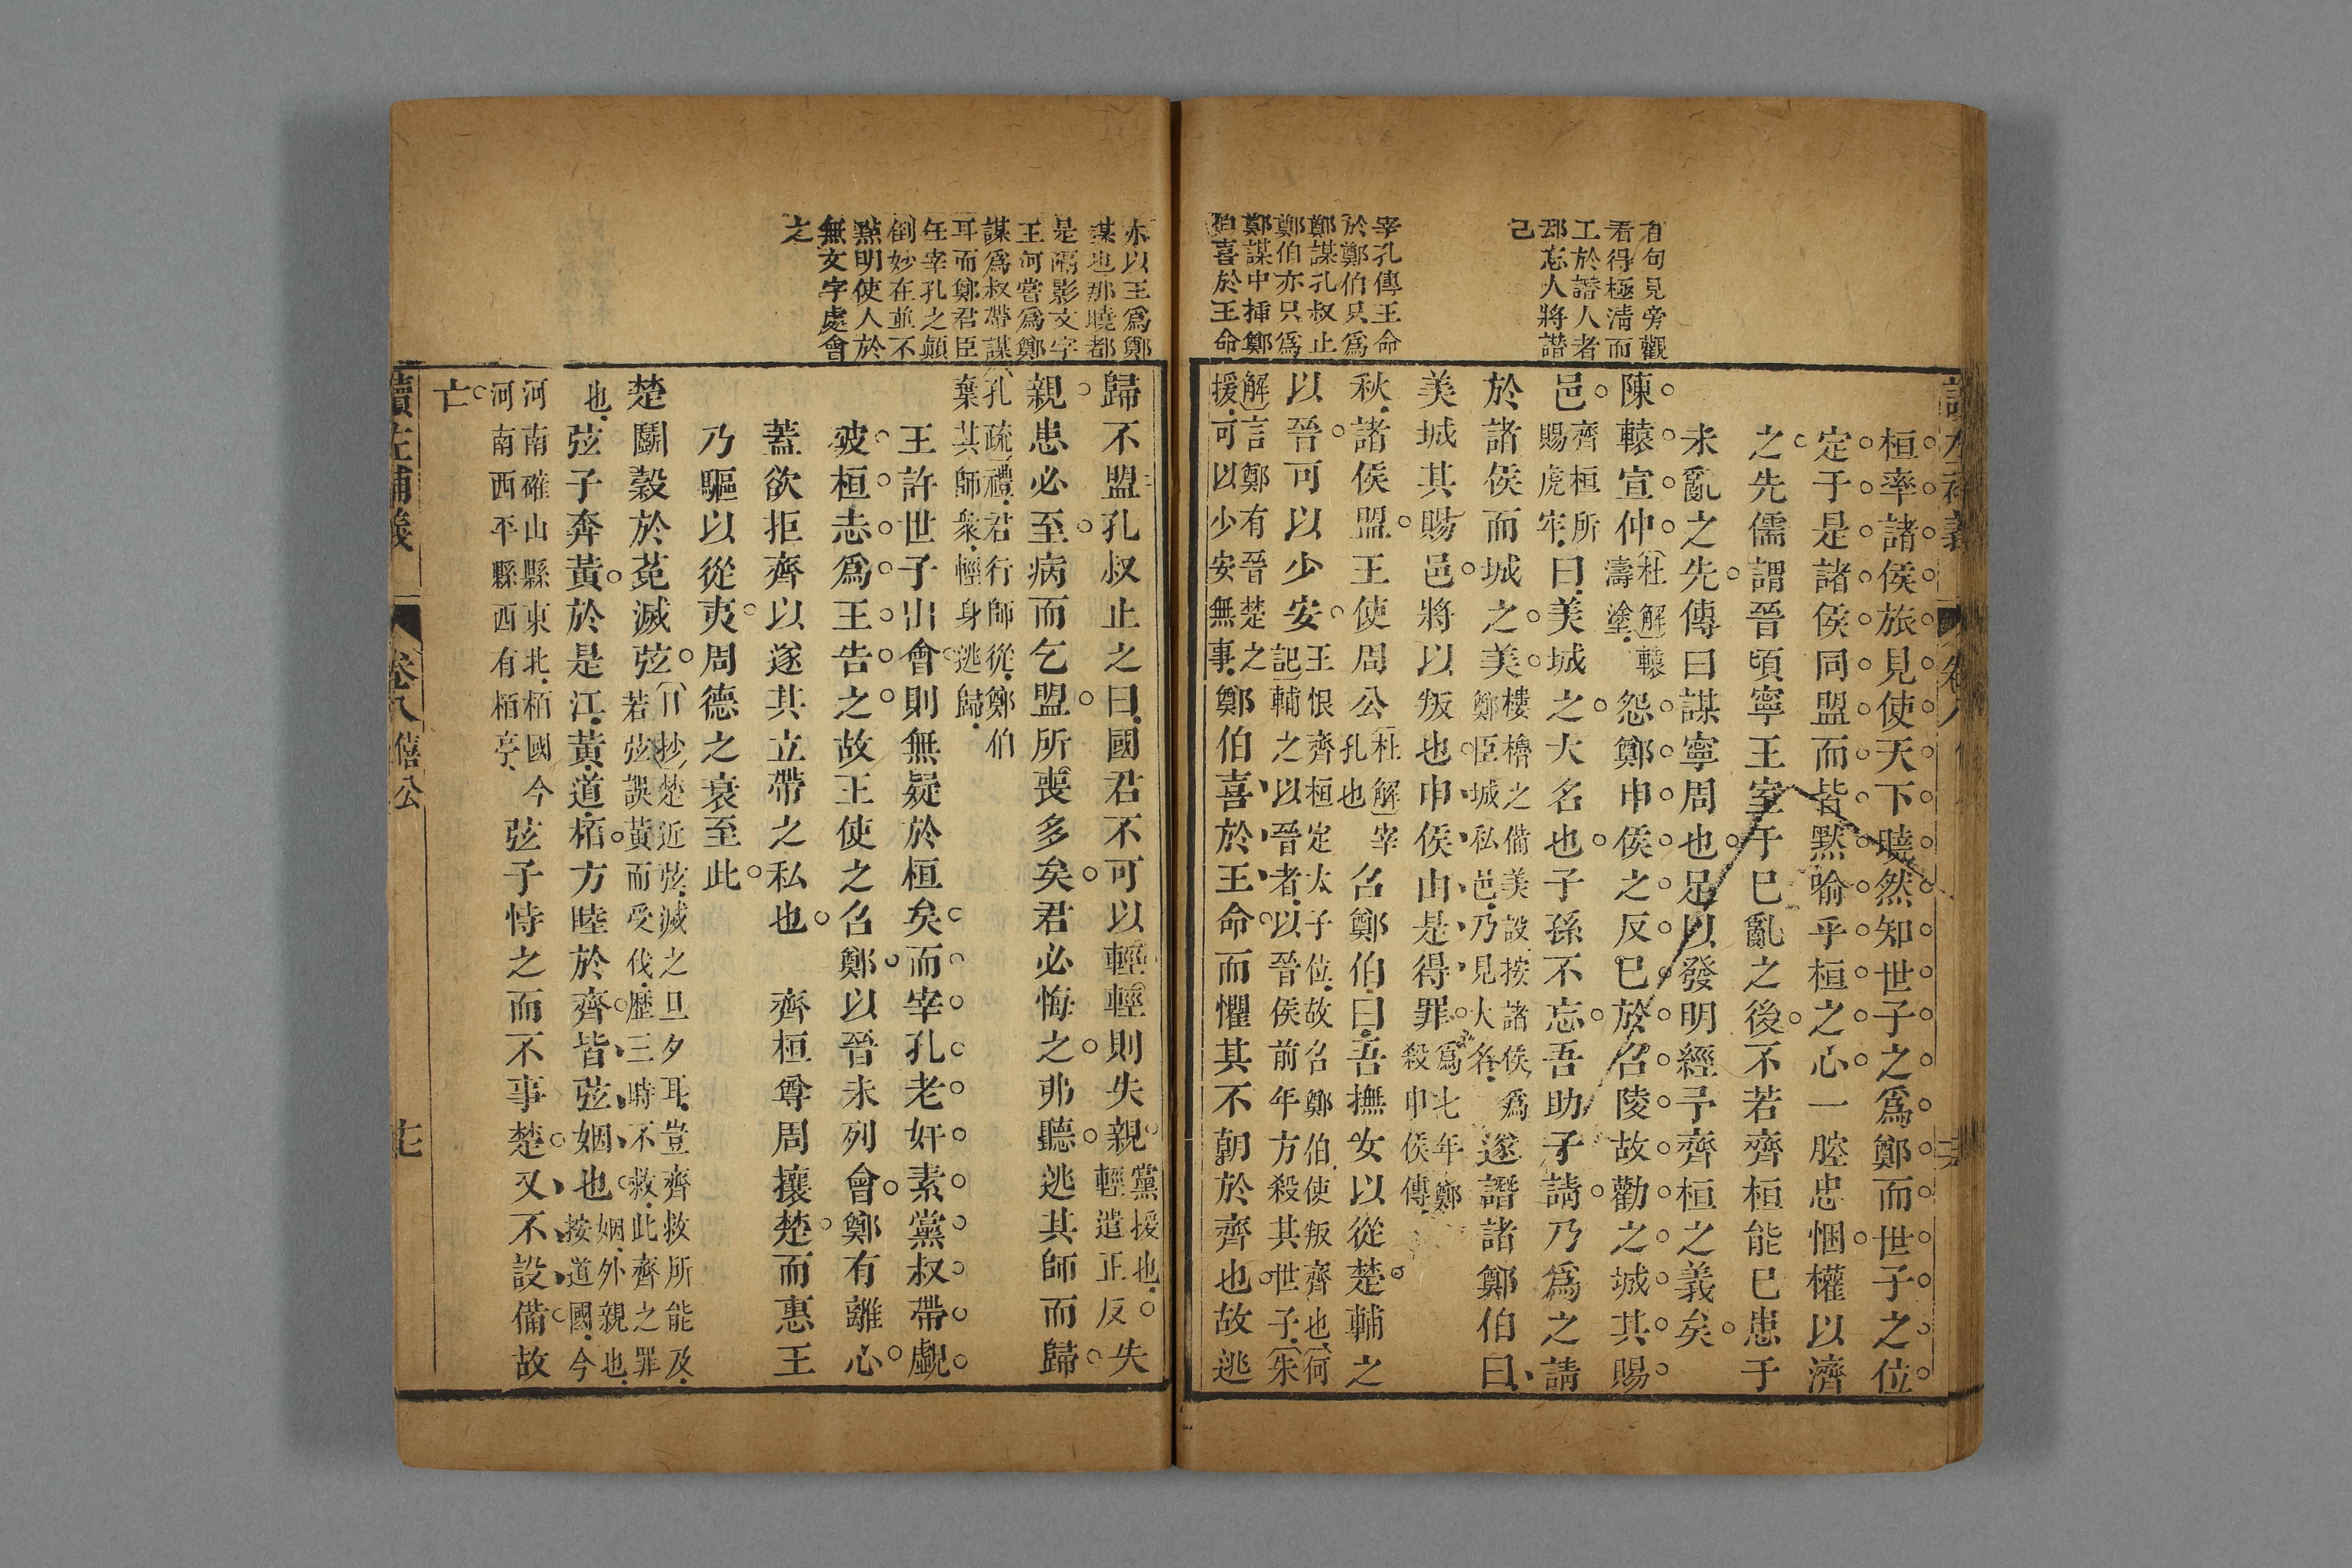 有句見旁觀
看得極清而
工於譖人者
却忘人將譖
己
宰孔傳王命
於鄭伯只爲
鄭謀孔叔止
鄭伯亦只爲
鄭謀中揷鄭
伯喜於王命
桓率諸侯旅見使天下曉然知世子之爲鄭而世子之位
定于是諸侯同盟而皆黙喻乎桓之心一腔忠悃權以濟
之先儒謂晉頃寧王室于巳亂之後不若齊桓能巳患于
未亂之先傳曰謀寧周也足以發明經予齊桓之義矣
陳轅宣仲杜解轅濤塗怨鄭申侯之反已於召陵故勸之城其賜
邑齊桓所賜虎牢曰美城之大名也子孫不忘吾助子請乃爲之請
於諸侯而城之美樓櫓之備美設按諸侯爲鄭臣城私邑乃見大名遂譖諸鄭伯曰
美城其賜邑將以叛也申侯由是得罪爲七年鄭殺申侯傳
秋諸侯盟王使周公杜解宰孔也召鄭伯曰吾撫女以從楚輔之
以晉可以少安王恨齊桓定太子位故召鄭伯使叛齊也何記輔之以晉者以晉侯前年方殺其世子朱
解言鄭有晉楚之援可以少安無事鄭伯喜於王命而懼其不朝於齊也故逃
亦以王爲鄭
謀也那曉都
是隔影文字
王何嘗爲鄭
謀爲叔帶謀
耳而鄭君臣
在宰孔之顛
倒妙在並不
點明使人於
無文字處會
之
歸不盟孔叔止之曰國君不可以輕輕則失親黨援也輕遣正反失
親患必至病而乞盟所喪多矣君必悔之弗聽逃其師而歸
孔疏禮君行師從鄭伯棄其師衆輕身逃歸
王許世子出會則無疑於桓矣而宰孔老奸素黨叔帶覰
彼桓志爲王告之故王使之召鄭以晉未列會鄭有離心
蓋欲拒齊以遂其立帶之私也 齊桓尊周攘楚而惠王
乃驅以從夷周德之衰至此
楚鬭穀於菟滅弦日抄楚近弦滅之旦夕耳豈齊救所能及若弦誤黃而受伐歷三時不救此齊之罪
也弦子奔黃於是江黃道栢方睦於齊皆弦姻也姻外親也按道國今
河南確山縣東北栢國今河南西平縣西有栢亭弦子恃之而不事楚又不設備故
亡
讀左補義
卷八
僖公